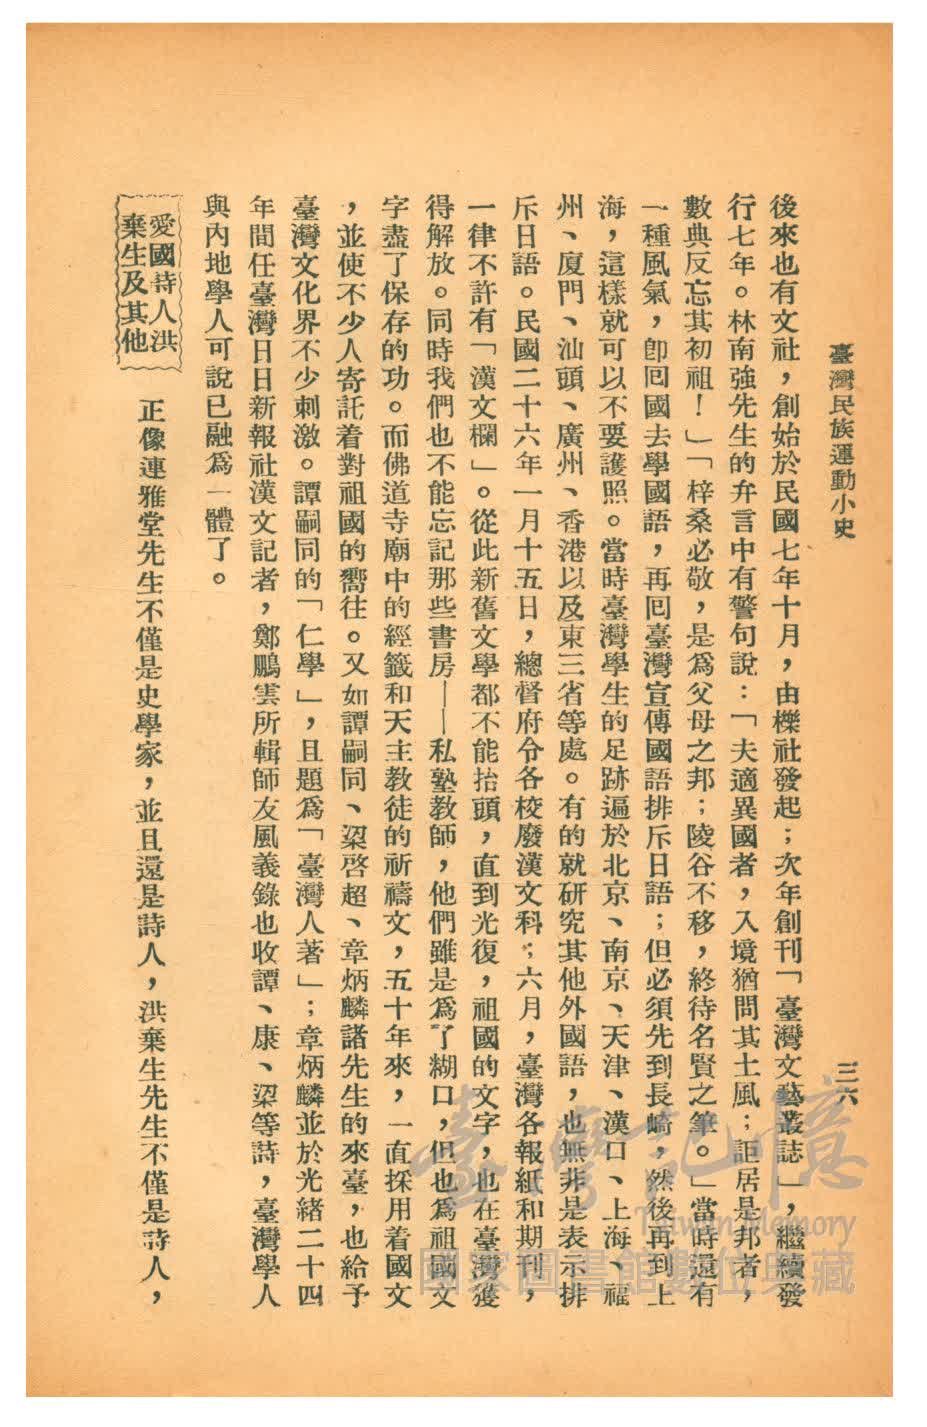 臺灣民族運動小史
三六
後來也有文社，創始於民國七年十月，由櫟社發起；次年創刊「臺灣文藝叢誌」，繼續發
行七年。林南強先生的弁言中有警句說：「夫適異國者，入境猶問其土風；詎居是邦者，
數典反忘其初祖！」「梓桑必敬，是爲父母之邦；陵谷不移，終待名賢之筆。」當時還有
一種風氣，卽囘國去學國語，再囘臺灣宣傳國語排斥日語；但必須先到長崎，然後再到上
海，這樣就可以不要護照。當時臺灣學生的足跡遍於北京、南京、天津、漢口、上海、福
州、廈門、汕頭、廣州、香港以及東三省等處。有的就研究其他外國語，也無非是表示排
斥日語。民國二十六年一月十五日，總督府令各校廢漢文科；六月，臺灣各報紙和期刊，
一律不許有「漢文欄」。從此新舊文學都不能抬頭，直到光復，祖國的文字，也在臺灣獲
得解放。同時我們也不能忘記那些書房——私塾教師，他們雖是爲了糊口，但也爲祖國文
字盡了保存的功。而佛道寺廟中的經籤和天主教徒的祈禱文，五十年來，一直採用着國文
，並使不少人寄託着對祖國的嚮往。又如譚嗣同、梁啓超、章炳麟諸先生的來臺，也給予
臺灣文化界不少刺激。譚嗣同的「仁學」，且題爲「臺灣人著」；章炳麟並於光緒二十四
年間任臺灣日日新報社漢文記者，鄭鵬雲所輯師友風義錄也收譚、康、梁等詩，臺灣學人
與內地學人可說已融爲一體了。
愛國詩人洪
棄生及其他
正像連雅堂先生不僅是史學家，並且還是詩人，洪棄生先生不僅是詩人，
臺灣記憶
Taiwan Memory
國家圖書館數位典藏